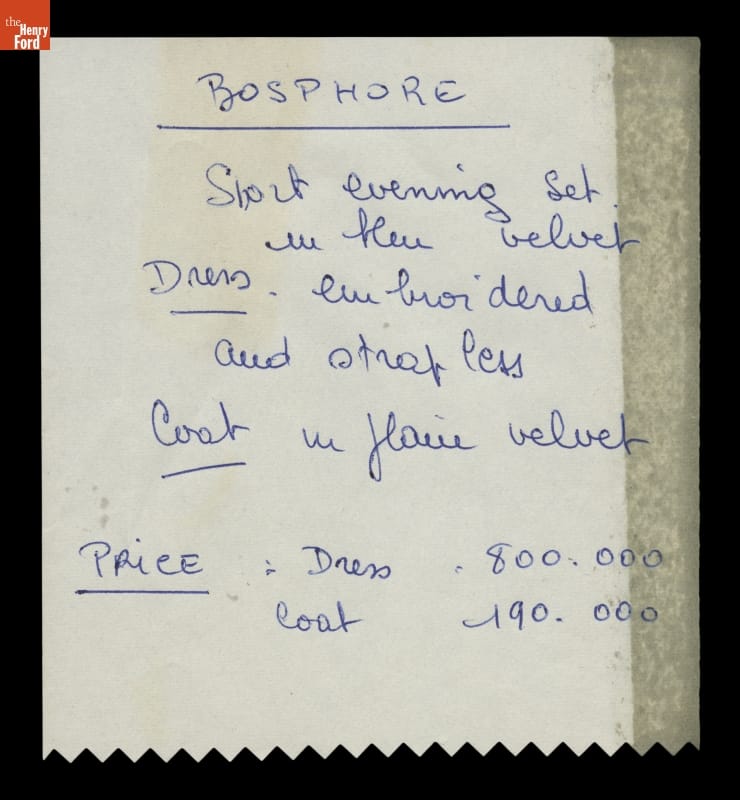 the
Henry
Ford
BOSPHORE
Short evening set.
in bleu velvet
Dress. embroidered
and strapless
Coat in plain velvet
PRICE : Dress . 800.000
Coat 190.000